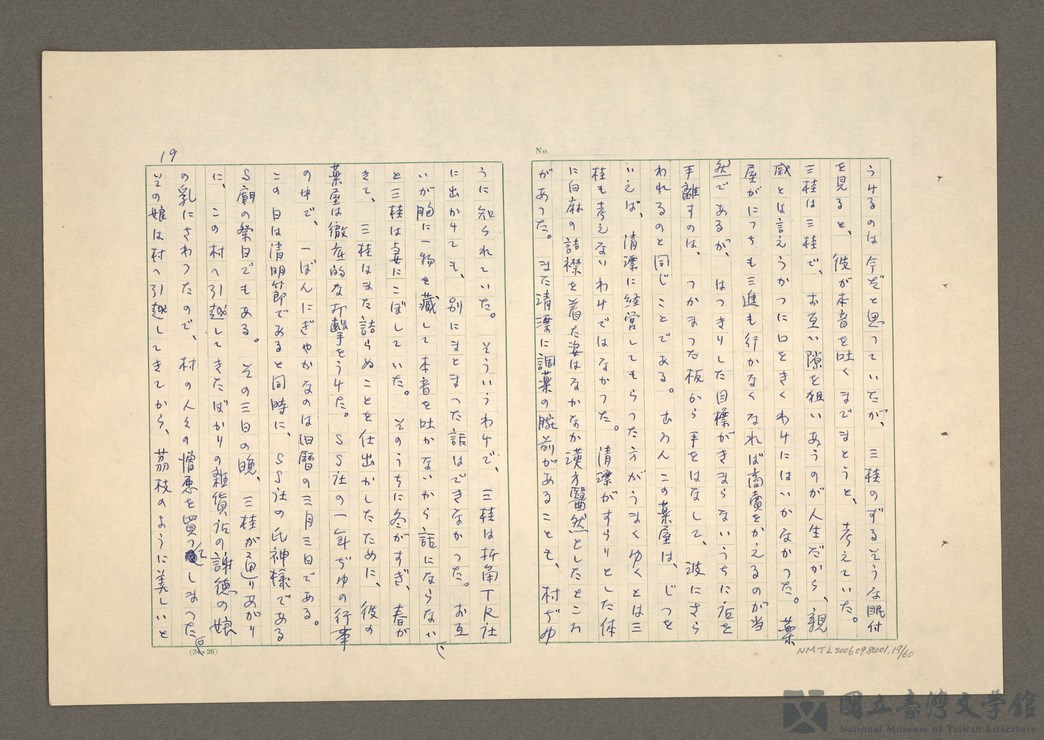 No.
うけるのは今だと思っていたが、三桂のずるそうな眼付
を見ると、彼が本音を吐くまでまとうと、考えていた。
三桂は三桂で、お互い隙を狙いあうのが人生だから、親
戚とは言えうかつに口をきくわけにはいかなかった。薬
屋がにっちも三進も行かなくなれば商賣をかえるのが当
然であるが、はっきりした目標がきまらないうちに店を
手離すのは、つかまった板から手をはなして、波にさら
われるのと同じことである。むろんこの薬屋は、じつを
いえば、清漂に経営してもらった方がうまくゆくとは三
桂も考えないわけではなかった。清漂がすらりとした体
に白麻の詰襟を着た姿はなかなか漢方醫然としたところ
があった。また清漂に調薬の腕前があることも、村ぢゆ
19
うに知られていた。そういうわけで、三桂は折角TR社
に出かけても、別にまとまった話はできなかった。お互
いが胸に一物を藏して本音を吐かないから話にならない
と三桂は妻にこぼしていた。そのうちに冬がすぎ、春が
きて、三桂はまた詰らぬことを仕出かしたために、彼の
薬屋は徹底的な打撃をうけた。SS社の一年ぢゆの行事
の中で、一ばんにぎやかなのは旧暦の三月三日である。
この日は清明節であると同時に、SS社の氏神様である
S廟の祭日でもある。その三日の晩、三桂が通りあがり
に、この村へ引越してきたばかりの雑貨店の謝德の娘
の乳にさわったので、村の人々の憎悪を買ってしまった。
その娘は村へ引越してきてから、茘枝のように美しいと
(24×25)
NMTL20060980001.19/60
國立臺灣文學館
National Museum of Taiwan Literature